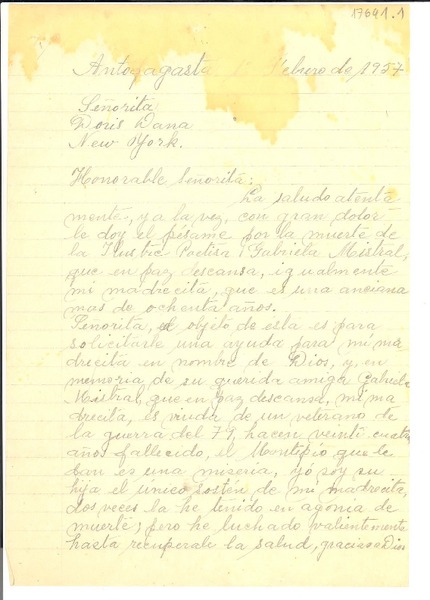 17641.1
Antofagasta 1º Febrero de, 1957
Señorita
Doris Dana
New York.
Honorable Señorita:
La saludo atenta
mente, y a la vez, con gran dolor
le doy el pésame por la muerte de
la Ilustre Poetisa Gabriela Mistral,
que en paz descansa, igualmente
mi madrecita, que es una anciana
mas de ochenta años.
Señorita, el objeto de esta es para
solicitarle una ayuda para mi ma
drecita en nombre de Dios, y, en
memoria de su querida amiga Gabriela
Mistral, que en paz descansa, mi ma
drecita, es viuda de un veterano de
la guerra del 79, hacen veinti cuatro
años fallecido, el Montipio que le
dan es una miseria, yó soy su
hija el único sostén de mi madrecita,
dos veces la he tenido en agonia de
muerte; pero he luchado valientemente
hasta recuperale la salud, gracias a Dios